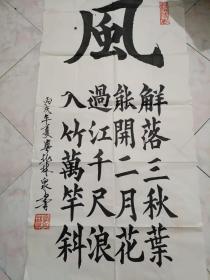 風
解落三秋葉
能開二月花
過江千尺浪
入竹萬竿斜
丙戌年夏
書